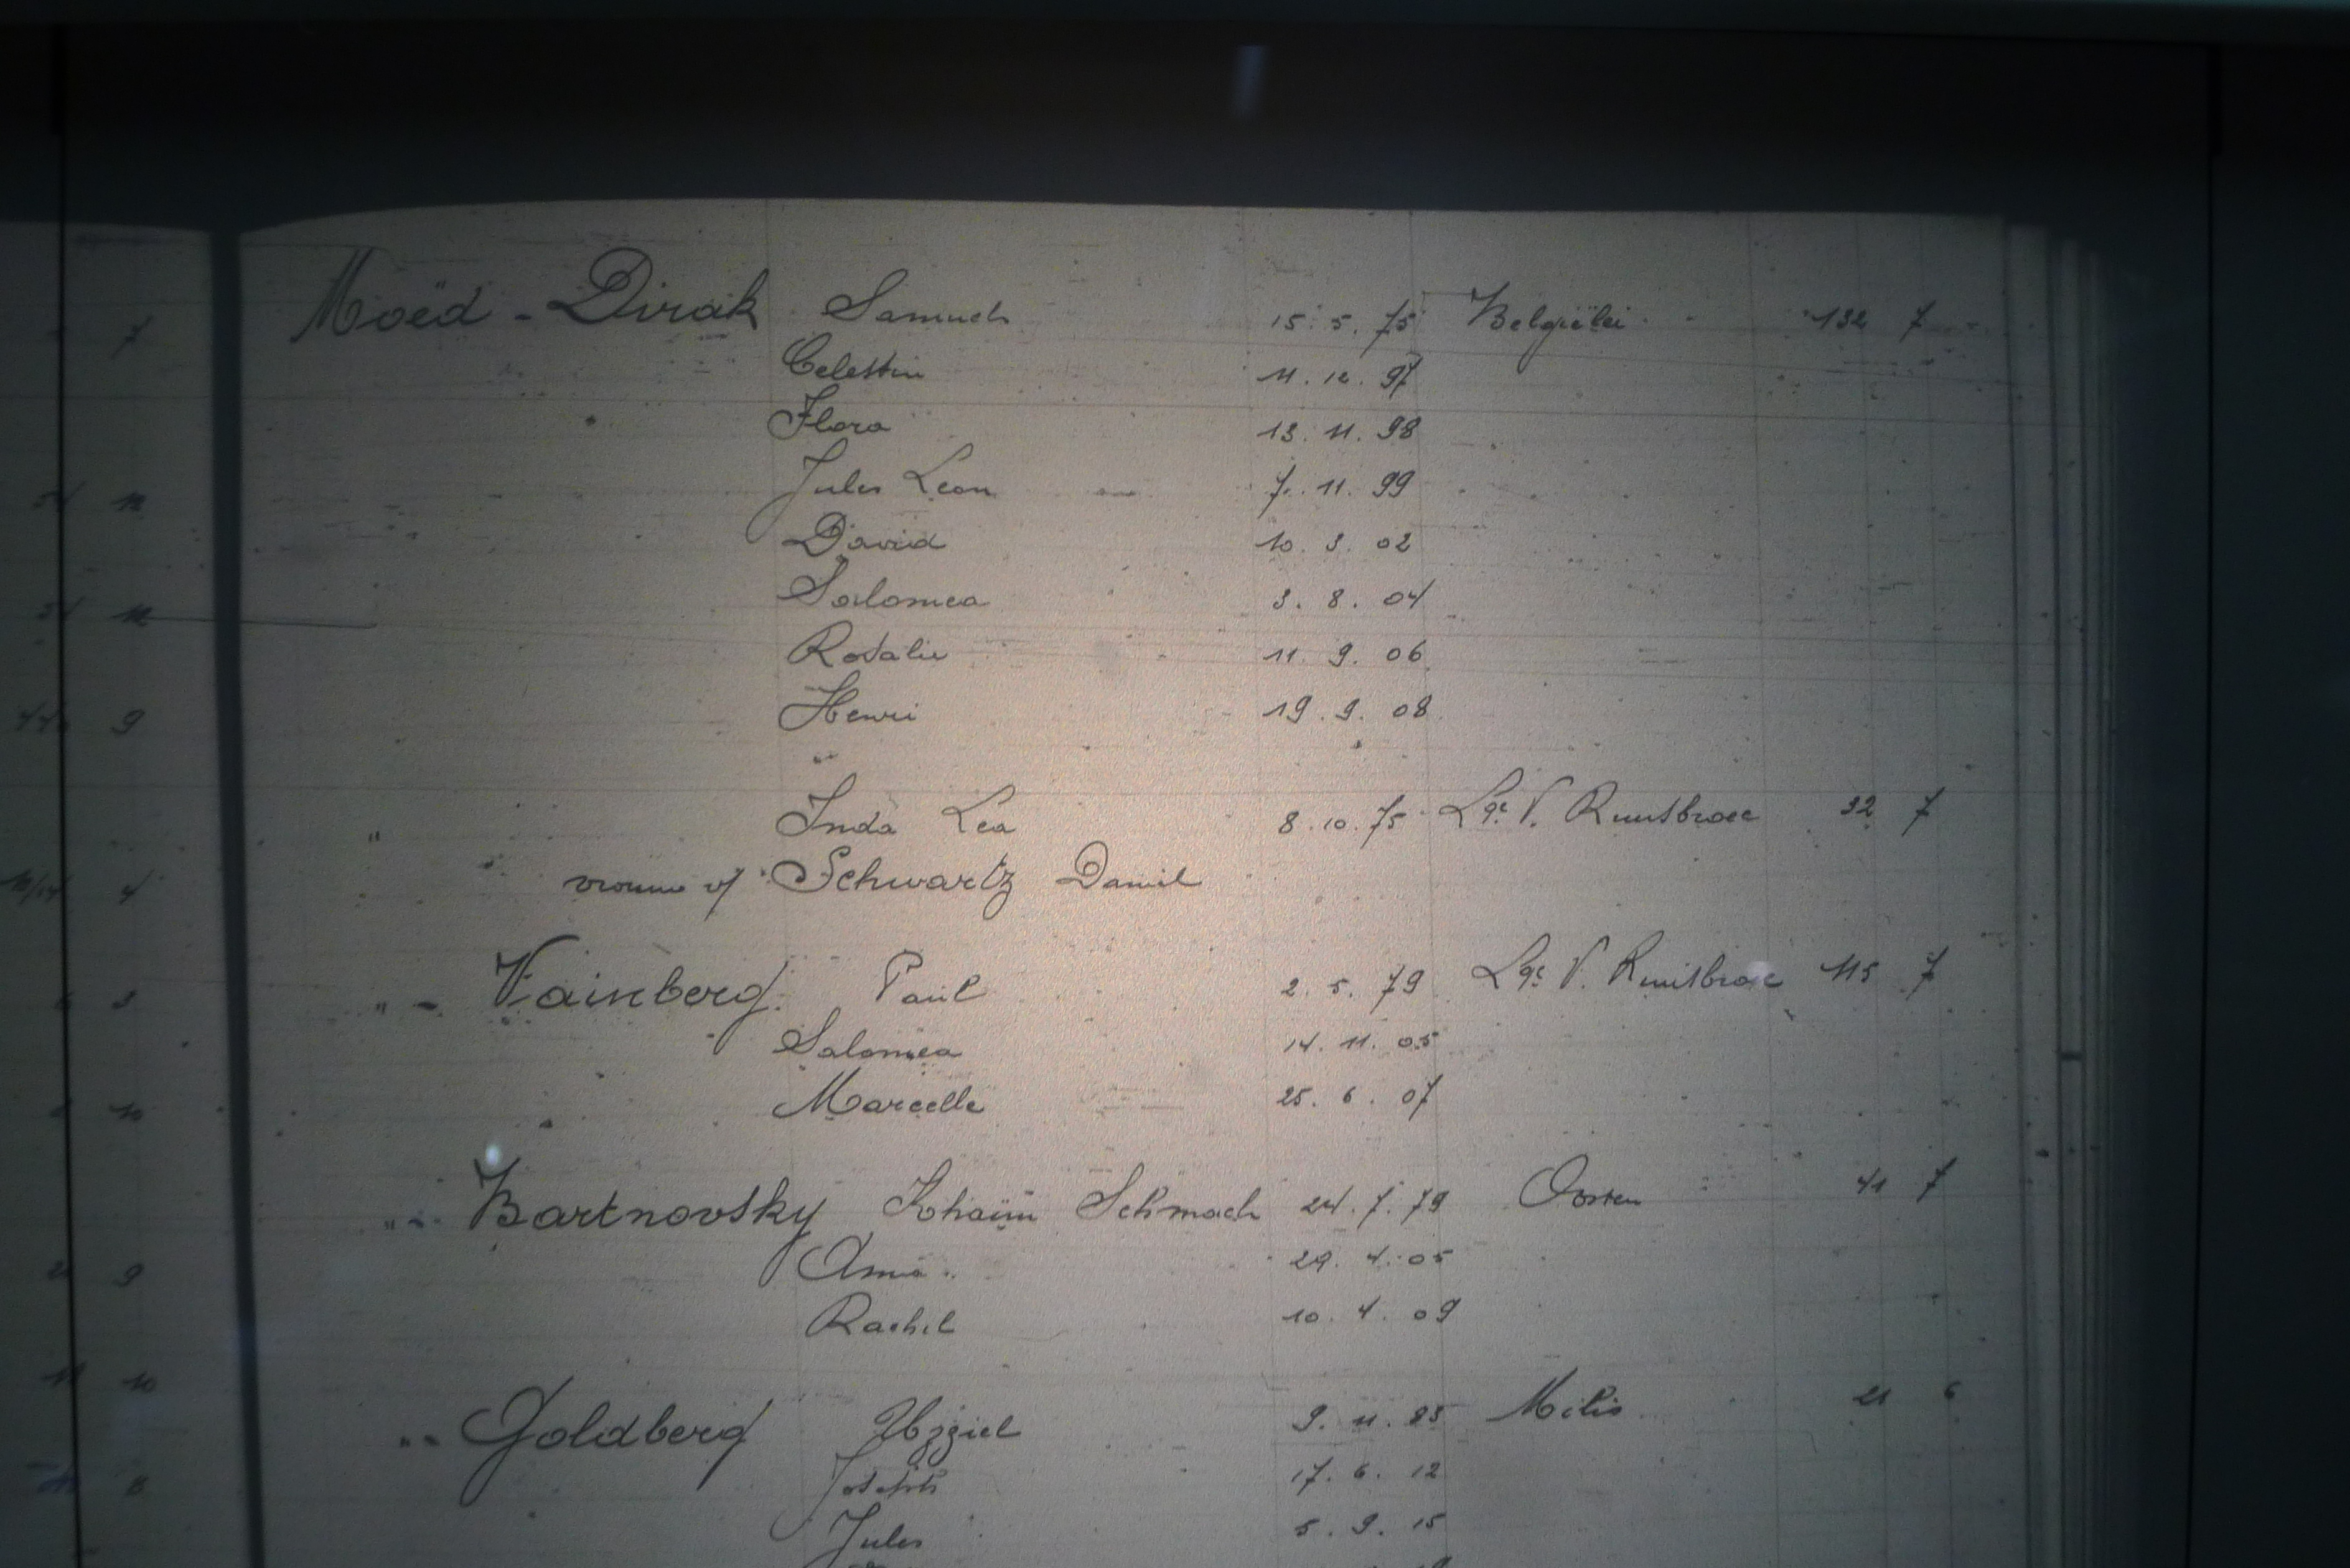 Moëd - Dirak Samuel 15. 5. 75 Belgiëlei 132 7
Celestin 11. 12. 97
Flora 13. 11. 98
Jules Leon 7. 11. 99
David 10. 3. 02
Salomea 3. 8. 04
Rosalie 11. 9. 06
Henri 19. 9. 08
" Inda Lea 8. 10. 75 Lge V. Ruusbroec 32 7
vrouw v/ Schwartz Daniel
" - Vainberg Paul 2. 5. 79 Lge V. Ruusbroec 115 7
Salomea 14. 11. 05
Marcelle 25. 6. 07
" - Bartnovsky Khaïm Schmach 24. 7. 79 Oosten 41 7
Anna 29. 4. 05
Rachel 10. 4. 09
" - Goldberg 9. 11. 85 Milis 21 6
Joseph 17. 6. 12
Jules 5. 9. 15